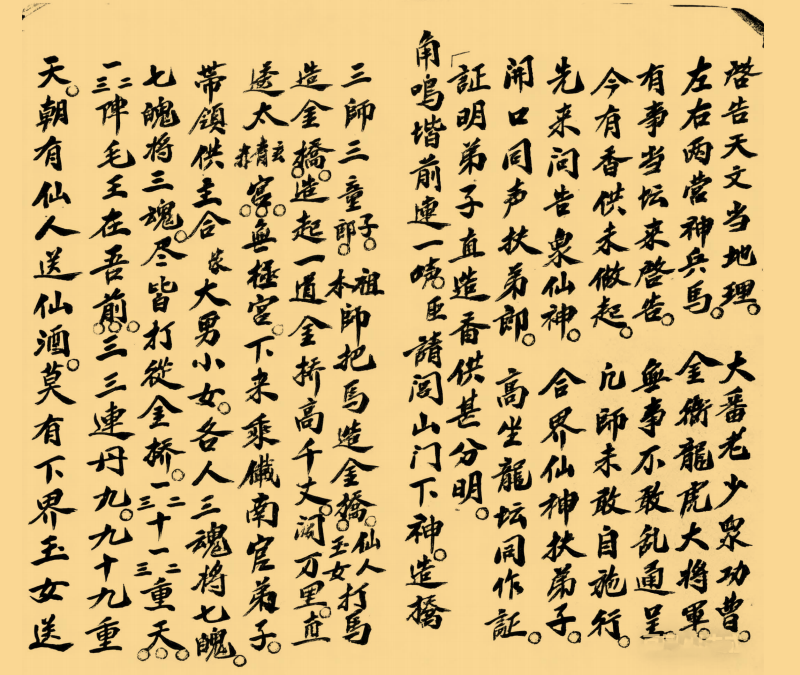 啓告天文当地理。大番老少衆功曹。
左右两营神兵馬。金衙龍虎大将軍。
有事当坛来啓告。無事不敢乱通呈。
今有香供未做起。凡師未敢自施行。
先来问告衆仙神。合界仙神扶弟子。
開口同声扶弟郎。高坐龍坛同作証。
証明弟子直造香供甚分明。
角鳴堦前連一咦。臣請闾山门下神。造橋
三師三童子郎。祖本師把馬造金橋。仙人玉女打馬
造金橋。造起一道金桥高千丈。濶万里。直
透太玄青赤宫。無極宫。下来乘儎南宫弟子。
帶領供主合家大男小女。各人三魂將七魄。
七魄将三魂。尽皆打從金桥。一二三十一二三重天。
一二三陣毛王在吾前。三三連丹九。九十九重
天。朝有仙人送仙酒。莫有下界玉女送